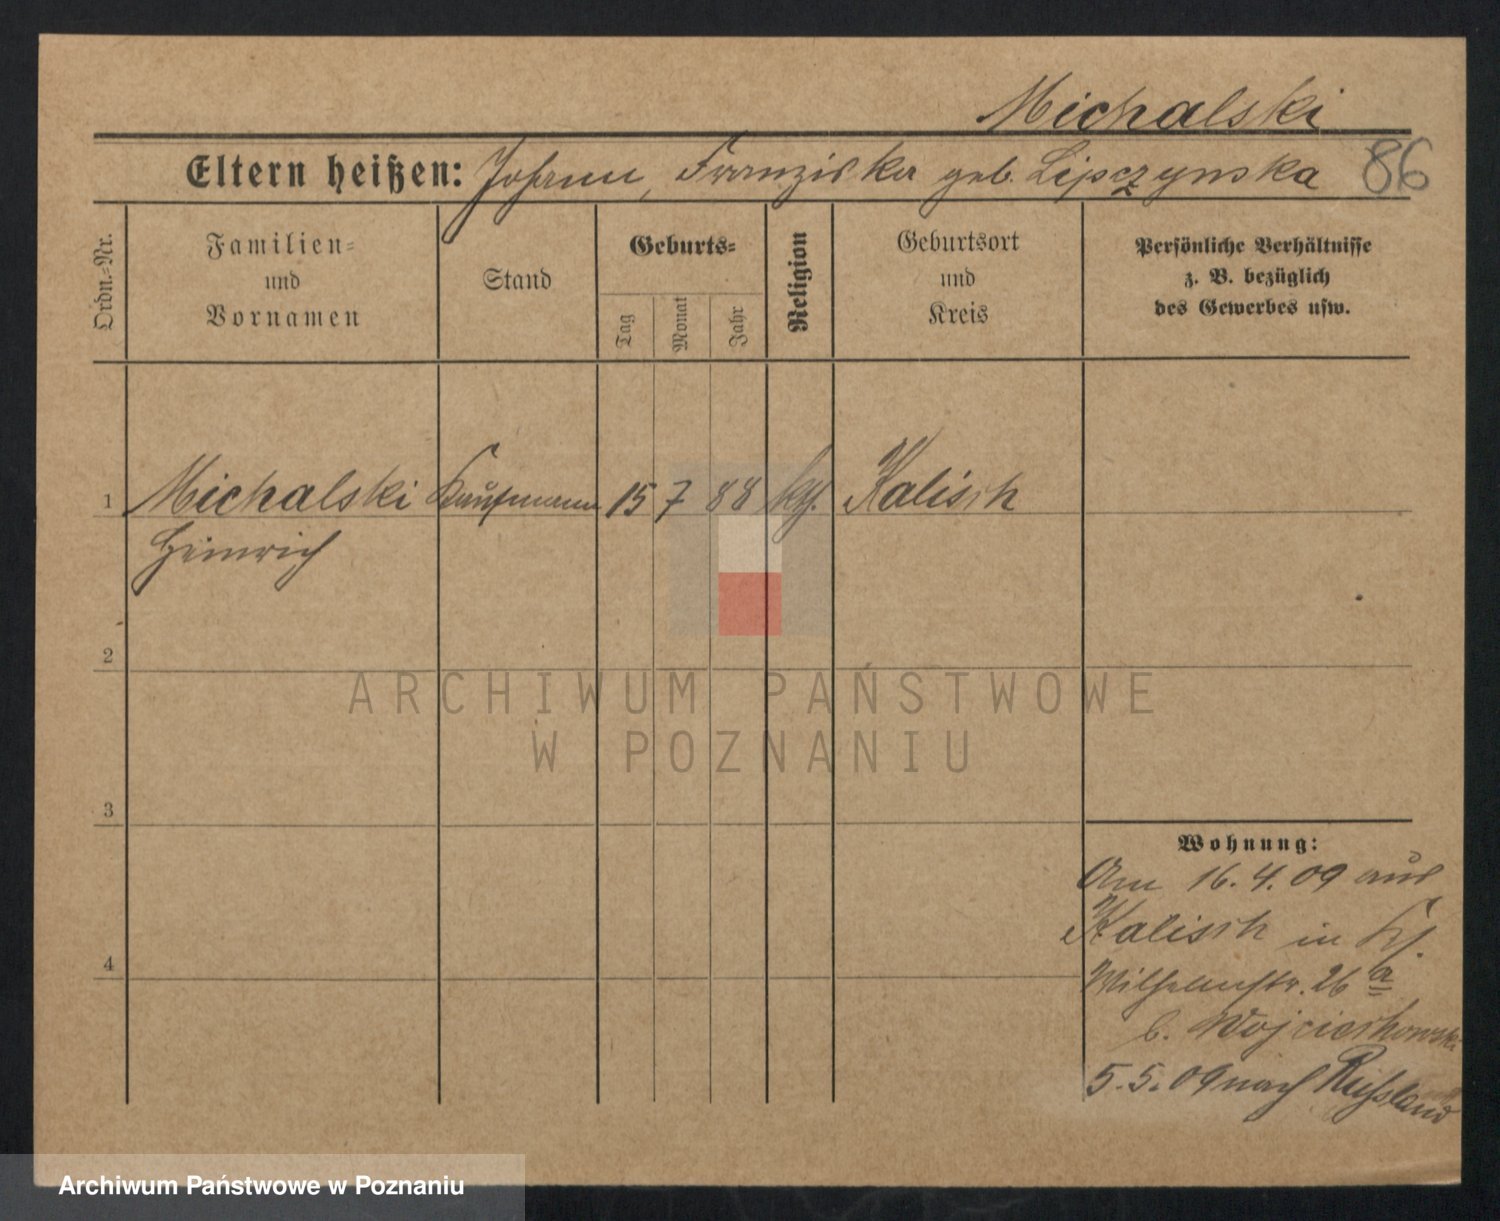 Michalski
Eltern heißen: Johann, Franziska geb. Lipczynska 86
Ordn.-Nr.
Familien-
und
Vornamen
Stand
Geburts-
Tag
Monat
Jahr
Religion
Geburtsort
und
Kreis
Persönliche Verhältnisse
z. B. bezüglich
des Gewerbes usw.
1 Michalski Kaufmann 15 7 88 Kalisch
Heinrich
2
3
4
Wohnung:
Am 16.4.09 aus
Kalisch in
Wilhelmstr. 26 a
b. Wojciechowski
5.5.09 nach Russland
ARCHIWUM PAŃSTWOWE
W POZNANIU
Archiwum Państwowe w Poznaniu